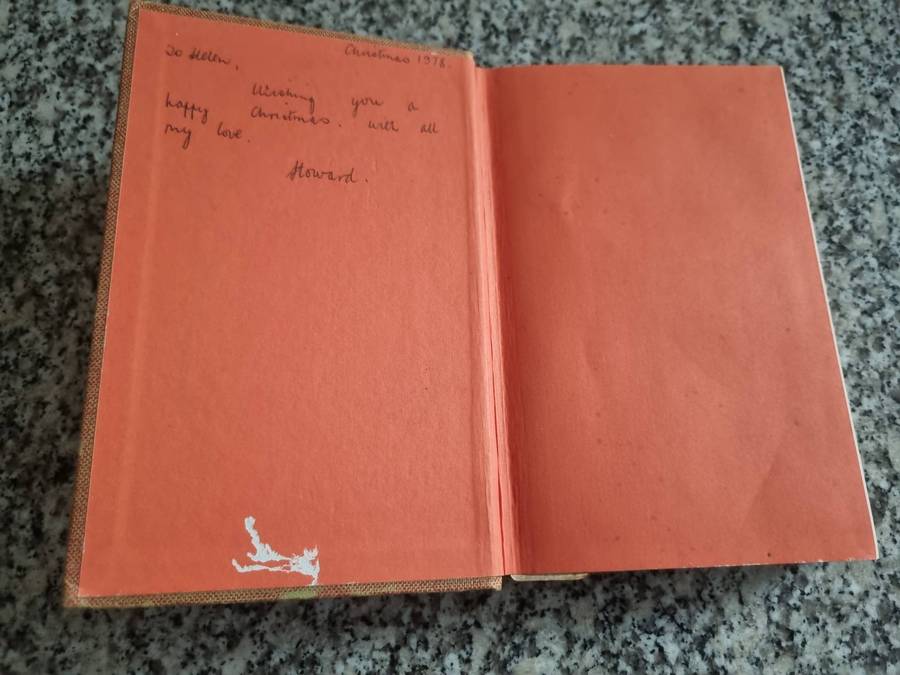 Christmas 1978.
To Helen,
Wishing you a
happy Christmas. with all
my love.
Howard.